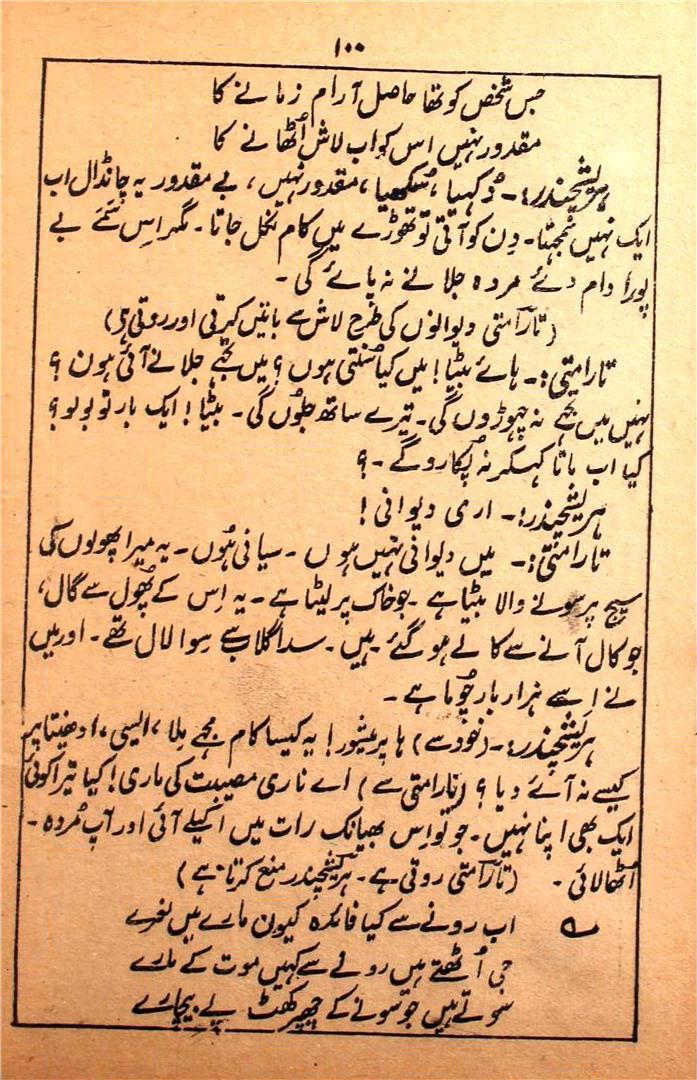 ۱۰۰
جس شخص کو تھا حاصل آرام زمانے کا
مقدور نہیں اس کو اب لاش اُٹھانے کا
ہریشچندر:۔ دُکہیا، سُکھیا، مقدور نہیں، بے مقدور یہ چانڈال اب
ایک نہیں سمجہتا۔ دِن کو آتی تو تھوڑے میں کام نکل جاتا۔ مگر اِس سَمَے بے
پورا دام دئے مردہ جلانے نہ پائے گی۔
(تارامتی دیوانوں کی طرح لاش سے باتیں کرتی اور روتی ہے)
تارامتی:۔ ہائے بیٹا! میں کیا سُنتی ہوں؟ میں تجہے جلانے آئی ہون؟
نہیں میں تجہے نہ چہوڑوں گی۔ تیرے ساتھ جلوں گی۔ بیٹا! ایک بار تو بولو؟
کیا اب ماتا کہکر نہ پکاروگے۔؟
ہریشچندر:۔ اری دیوانی!
تارامتی:۔ میں دیوانی نہیں ہوں۔ سیانی ہُوں۔ یہ میرا پھولوں کی
سیج پر سونے والا بیٹا ہے۔ جو خاک پر لیٹا ہے۔ یہ اِس کے پھُول سے گال،
جو کال آنے سے کالے ہو گئے ہیں۔ سدا گلاب سے سوا لال تھے۔ اور میں
نے اِسے ہزار بار چُوما ہے۔
ہریشچندر:۔ (خود سے) ہا پرمیشور! یہ کیسا کام مجہے مِلا، ایسی،
کیسے نہ آئے دیا؟ (تارامتی سے) اے ناری مصیبت کی ماری! کیا تیرا کوئی
ایک بھی اپنا نہیں۔ جو تو اِس بھیانک رات میں اکیلے آئی اور آپ مُردہ۔
اُٹھا لائی۔ (تارامتی روتی ہے۔ ہریشچندر منع کرتا ہے)
اب رونے سے کیا فائدہ کیون مارے ہیں نعرے
جی اُٹھتے ہیں رونے سے کہیں موت کے مارے
سوتے ہیں جو سونے کے چھپر کھٹ پے بیچارے